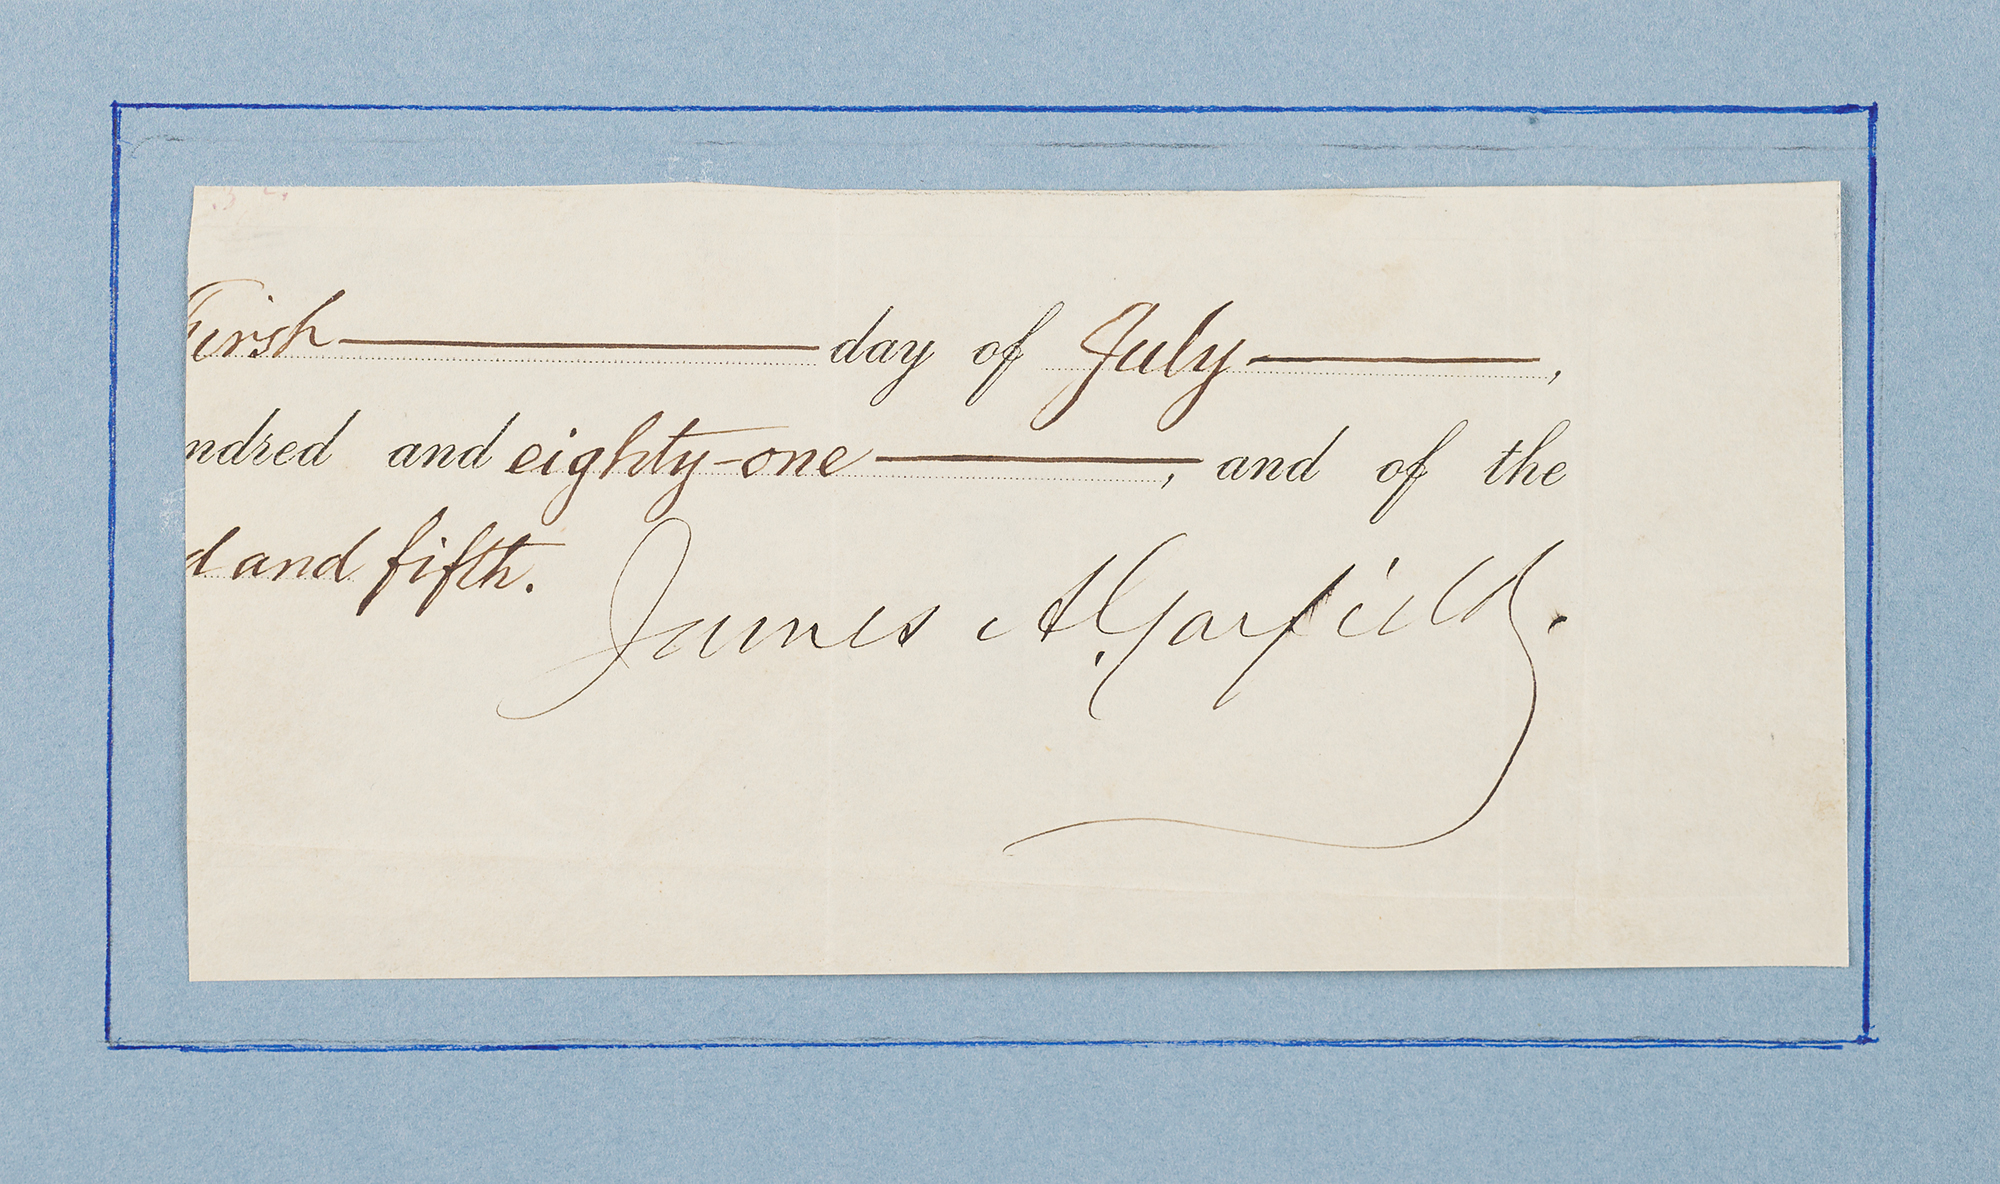 First day of July ,
ndred and eighty-one , and of the
d and fifth.
James A. Garfield.